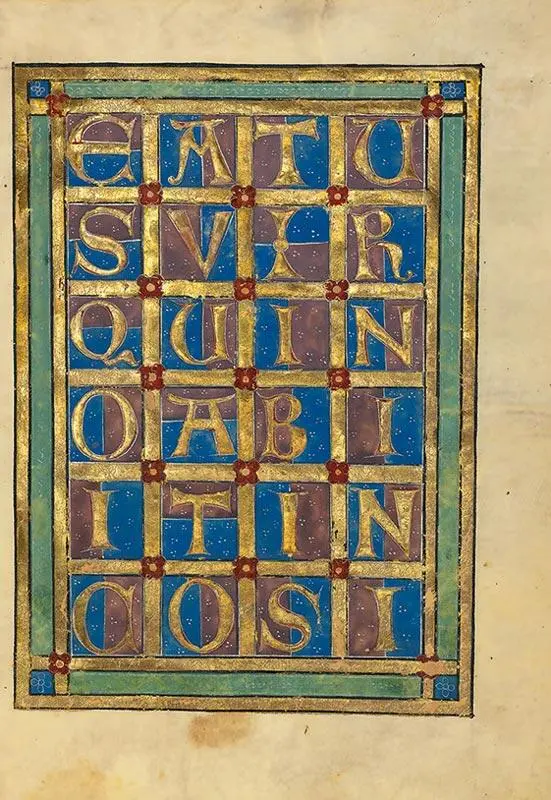 EATU
SVIR
QUIN
OABI
ITIN
COSI